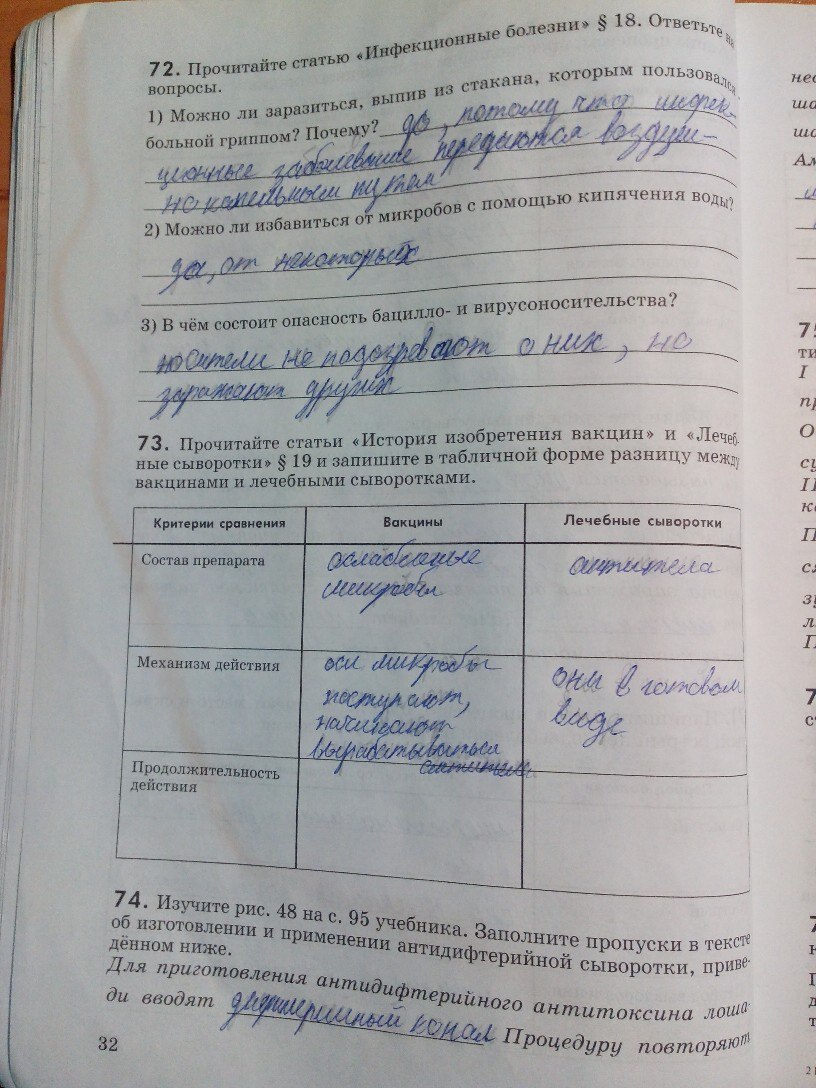 72. Прочитайте статью «Инфекционные болезни» § 18. Ответьте на
вопросы.
1) Можно ли заразиться, выпив из стакана, которым пользовался
больной гриппом? Почему? да, потому что инфек-
ционные заболевание передаются воздуш-
но капельным путем
2) Можно ли избавиться от микробов с помощью кипячения воды?
да, от некоторых
3) В чём состоит опасность бацилло- и вирусоносительства?
носители не подозревают о них, но
заражают других
73. Прочитайте статьи «История изобретения вакцин» и «Лечеб-
ные сыворотки» § 19 и запишите в табличной форме разницу между
вакцинами и лечебными сыворотками.
Критерии сравнения Вакцины Лечебные сыворотки
Состав препарата ослабленные антитела
микробы
Механизм действия осл микробы они в готовом
поступают, виде
начинают
вырабатываться
антитела
Продолжительность
действия
74. Изучите рис. 48 на с. 95 учебника. Заполните пропуски в тексте
об изготовлении и применении антидифтерийной сыворотки, приве-
дённом ниже.
Для приготовления антидифтерийного антитоксина лоша-
ди вводят Процедуру повторяют
32
нес
ша
ша
Ам
75
ти
I
пр
О
су
II
ка
П
сл
зу
л
П
7
с
7